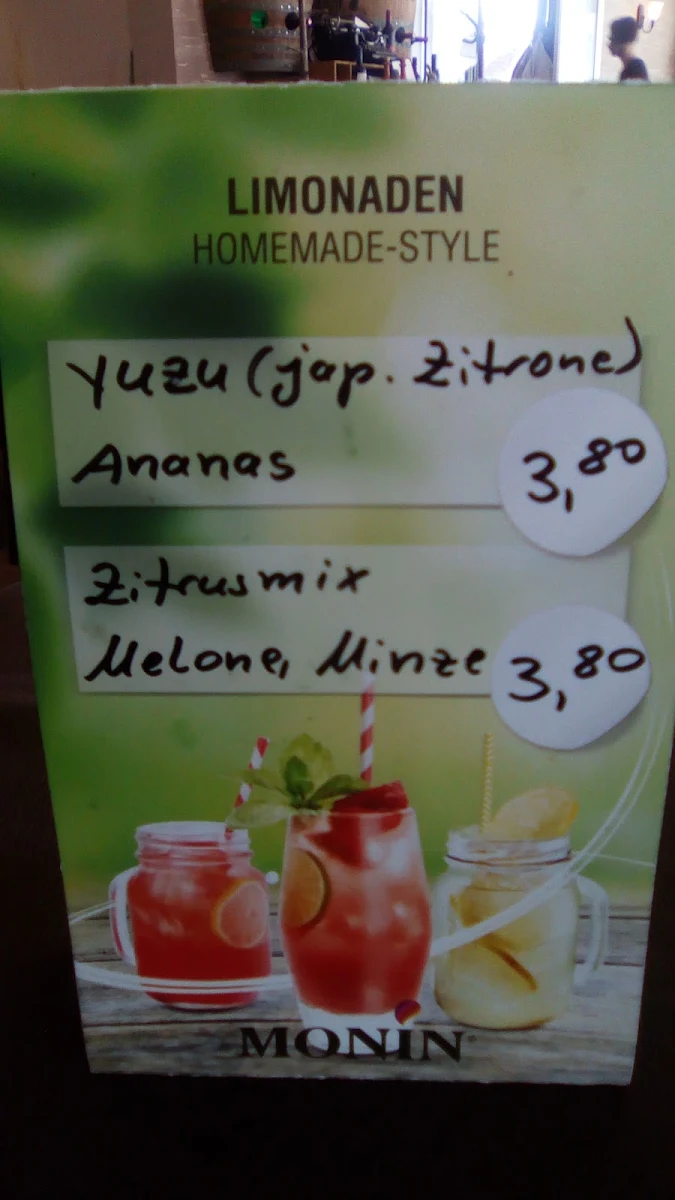 LIMONADEN
HOMEMADE-STYLE
Yuzu (jap. Zitrone)
Ananas 3,80
Zitrusmix
Melone, Minze 3,80
MONIN